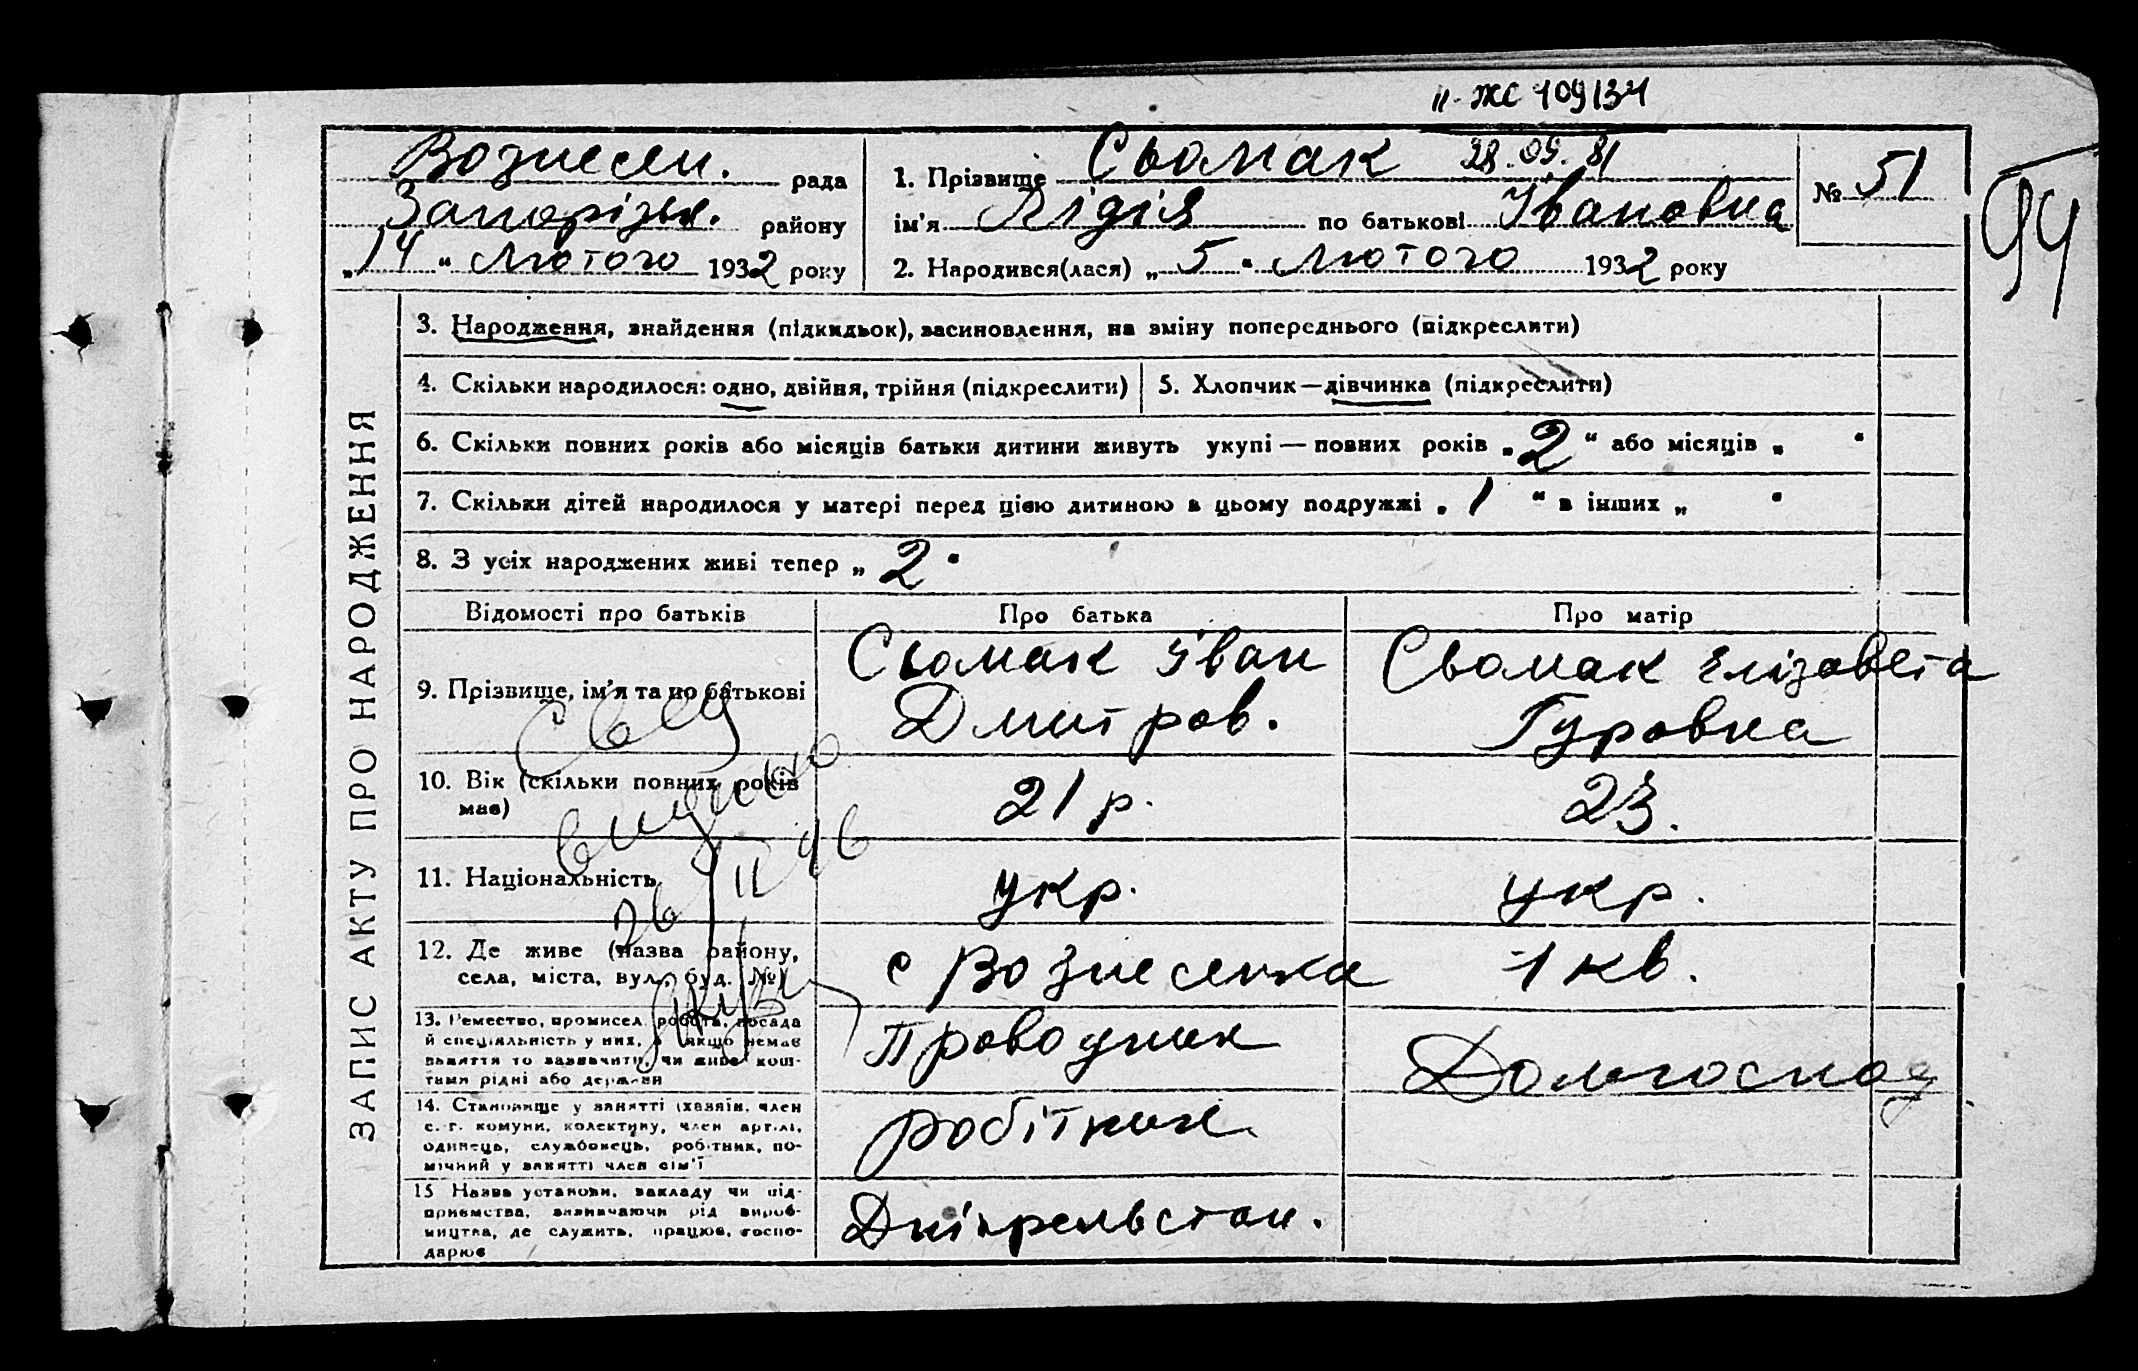 II-ЖС 109134
28.09.81
94
Вознесен. рада
Запорізьк. району
„14“ Лютого 1932 року
1. Прізвище Сьомак
ім'я Лідія по батькові Івановна
2. Народився(лася) „5“ Лютого 1932 року
№ 51
ЗАПИС АКТУ ПРО НАРОДЖЕННЯ
3. Народження, знайдення (підкидьок), засиновлення, на зміну попереднього (підкреслити)
4. Скільки народилося: одно, двійня, трійня (підкреслити)
5. Хлопчик—дівчинка (підкреслити)
6. Скільки повних років або місяців батьки дитини живуть укупі — повних років „2“ або місяців „ “
7. Скільки дітей народилося у матері перед цією дитиною в цьому подружжі „1“ в інших „ “
8. З усіх народжених живі тепер „2“
Відомості про батьків
Про батька
Про матір
9. Прізвище, ім'я та по батькові
Сьомак Іван
Дмитров.
Сьомак Елізавета
Гуровна
10. Вік (скільки повних років
має)
21 р.
23.
11. Національність
укр.
укр.
12. Де живе (назва району,
села, міста, вул., буд. №)
с Вознесенка 1 кв.
13. Ремество, промисел, робота, посада
й спеціяльність у них, а якщо немає
заняття то зазначити, чи живе кош-
тами рідні або держави
Проводник
Домогоспод
14. Становище у занятті (хазяїн, член
с.-г. комуни, колективу, член артілі,
одинець, службовець, робітник, по-
мічний у занятті член сім'ї
робітник
15 Назва установи, закладу чи під-
приємства, визначаючи рід вироб-
ництва, де служить, працює, госпо-
дарює
Дніпрельстан.
Свід
видано
26/II 46